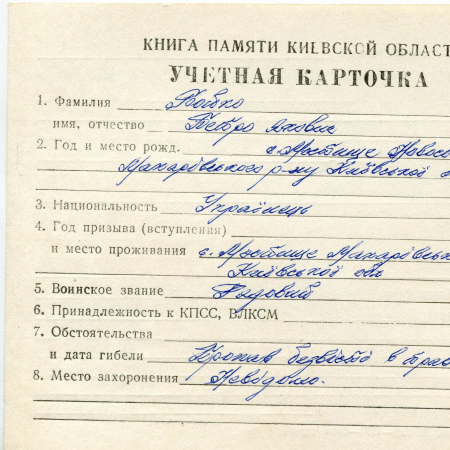 КНИГА ПАМЯТИ КИЕВСКОЙ ОБЛАСТ
УЧЕТНАЯ КАРТОЧКА
1. Фамилия Бойко
имя, отчество Петро Якович
2. Год и место рожд. с. Мостище
Макарівського р-ну Київської
3. Национальность Українець
4. Год призыва (вступления)
и место проживания с. Мостище Макарівськ
Київської обл
5. Воинское звание Рядовий
6. Принадлежность к КПСС, ВЛКСМ
7. Обстоятельства
и дата гибели Пропав безвісті в трав
8. Место захоронения Невідомо.